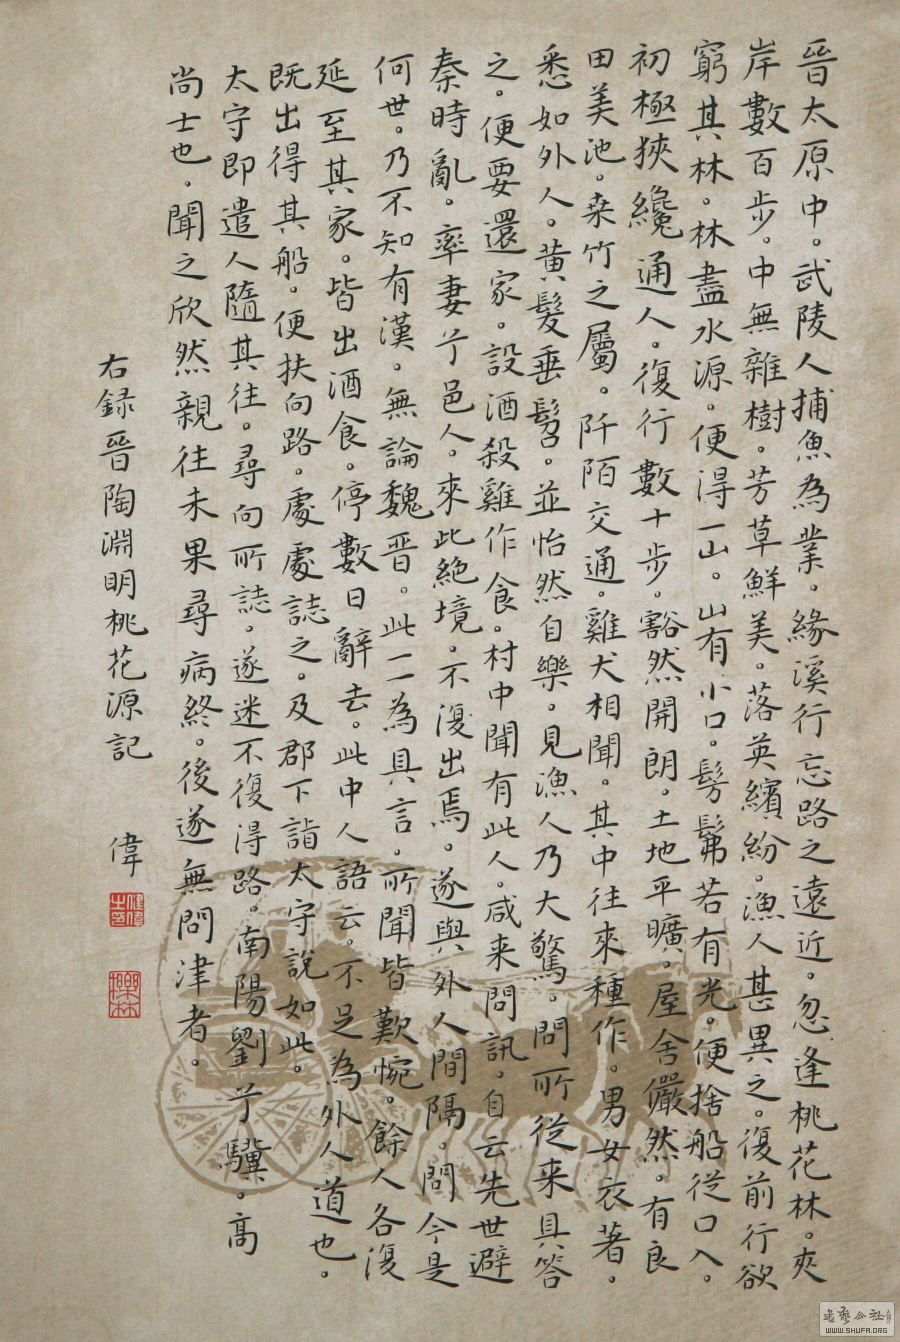 晉太原中。武陵人捕魚為業。緣溪行忘路之遠近。忽逢桃花林。夾
岸數百步。中無雜樹。芳草鮮美。落英繽紛。漁人甚異之。復前行欲
窮其林。林盡水源。便得一山。山有小口。髣髴若有光。便捨船從口入。
初極狹纔通人。復行數十步。豁然開朗。土地平曠。屋舍儼然。有良
田美池。桑竹之屬。阡陌交通。雞犬相聞。其中往來種作。男女衣著。
悉如外人。黄髮垂髫。並怡然自樂。見漁人乃大驚。問所從来具答
之。便要還家。設酒殺雞作食。村中聞有此人。咸来問訊。自云先世避
秦時亂。率妻子邑人。來此絕境。不復出焉。遂與外人間隔。問今是
何世。乃不知有漢。無論魏晋。此人一一為具言。所聞皆歎惋。餘人各復
延至其家。皆出酒食。停數日辭去。此中人語云。不足為外人道也。
既出得其船。便扶向路。處處誌之。及郡下詣太守說如此。
太守即遣人隨其往。尋向所誌。遂迷不復得路。南陽劉子驥。高
尚士也。聞之欣然親往未果尋病終。後遂無問津者。
右録晉陶淵明桃花源記
偉
WWW.SHUFA.ORG